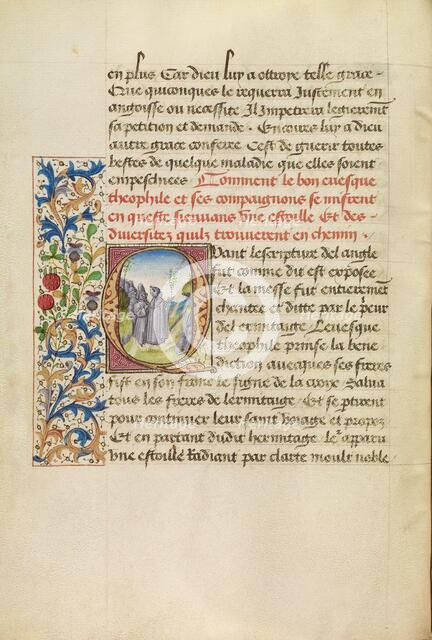 en plus Car dieu luy a ottroye telle grace.
Que quiconques le requerra Justement en
angoisse ou necessite Il Impetrera legierement
sa petition et demande. Encores luy a dieu
autre grace conferee Cest de guerir toutes
bestes de quelque maladie que elles soient
empeschiees Comment le bon euesque
theophile et ses compaignons se misrent
en queste sieuuans vne estoille Et des
diuersitez quilz trouuerent en chemin.
Quant lescripture del angle
fut comme dit est exposee
Et la messe fut entierement
chantee et ditte par le prieur
del ermitaige Leuesque
theophile prinse la bene
diction auecques ses freres
fist en son frone le signe de la croix Salua
tous les freres de lermitaige Et se partirent
pour continuer leur saint voiage et propoz
Et en partant dudit hermitage le apparu
vne estoille Radiant par clarte moult noble